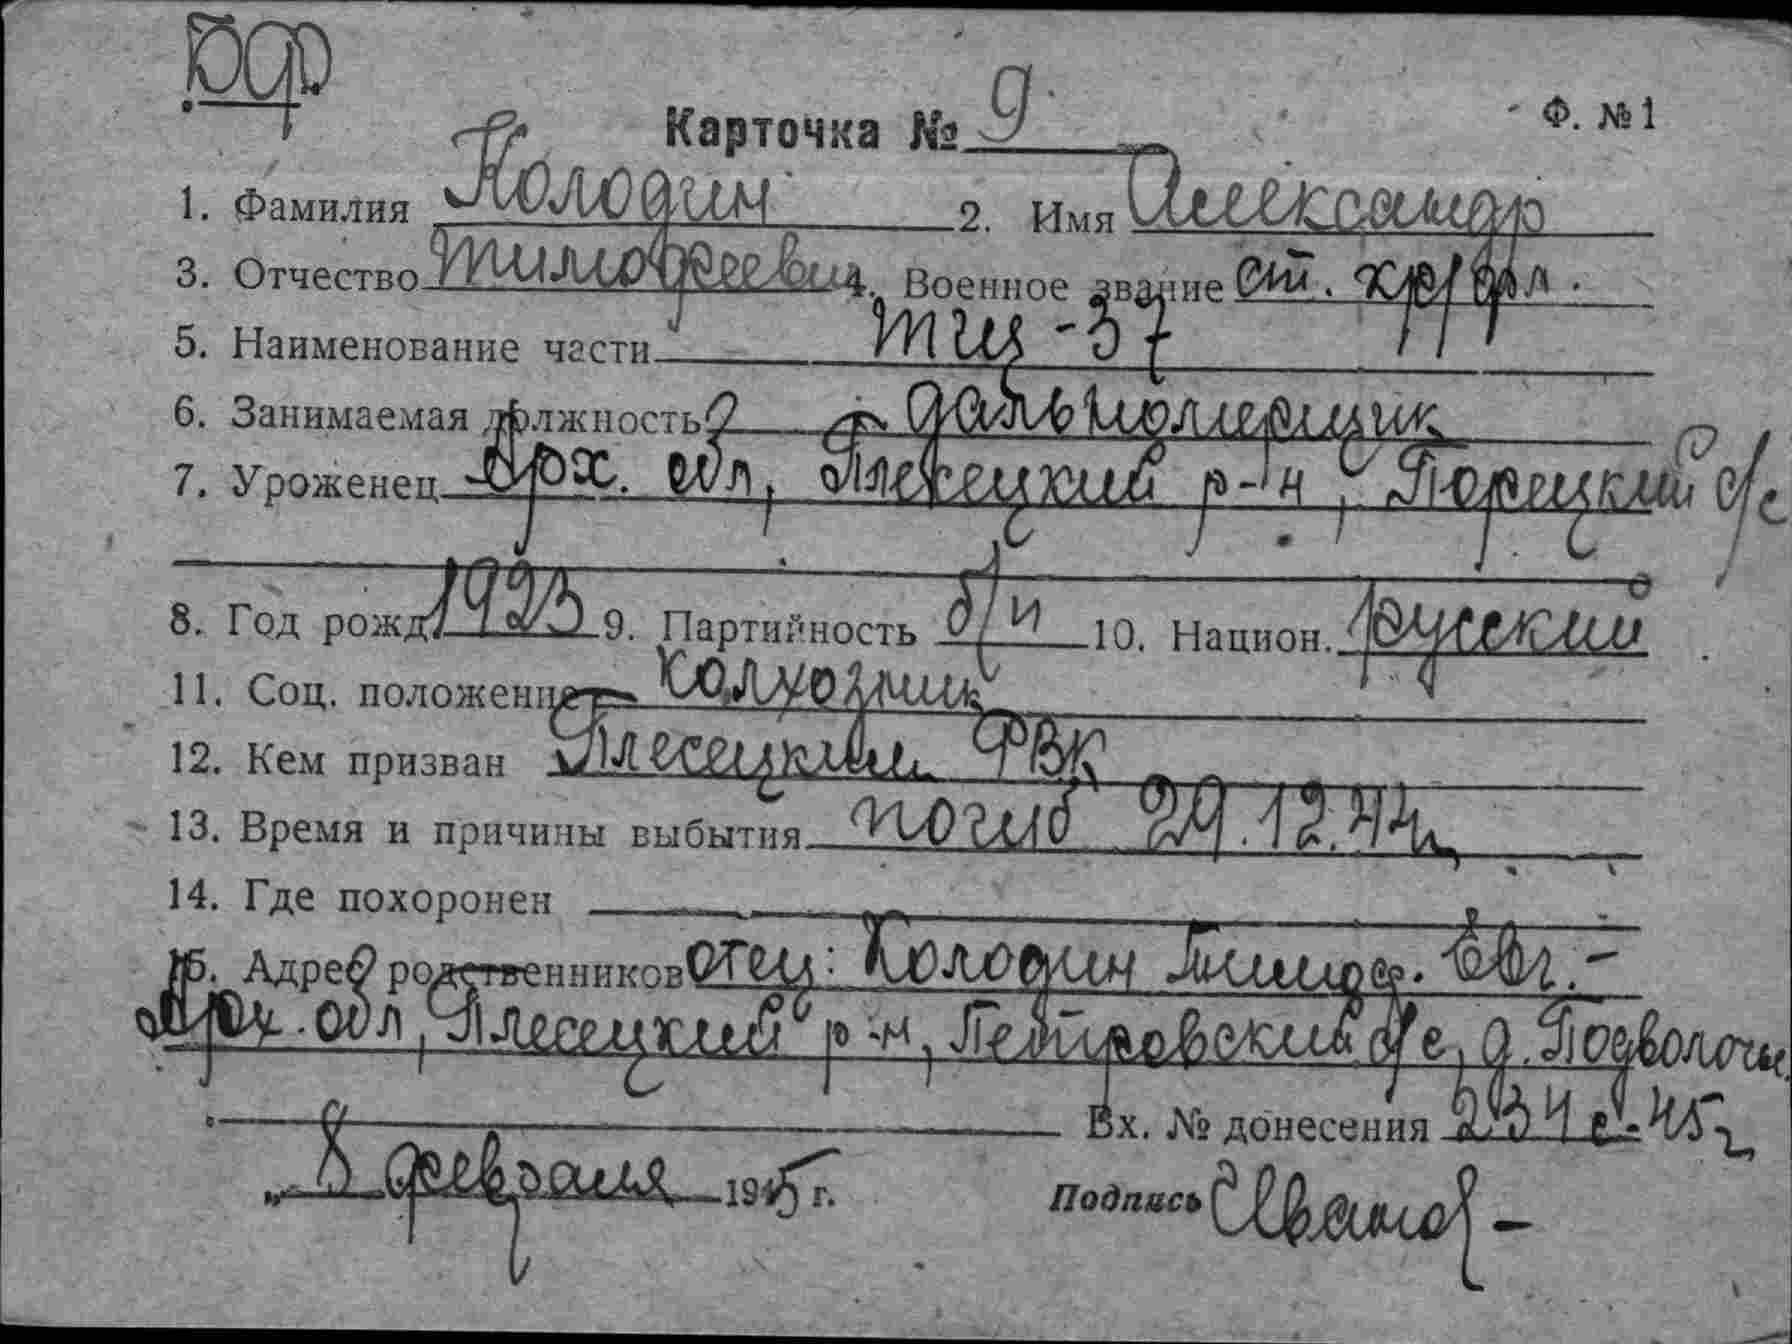 Карточка № 9 Ф. № 1
1. Фамилия Колодин 2. Имя Александр
3. Отчество Тимофеевич 4. Военное звание ст. кр/фл.
5. Наименование части ТЩ-37
6. Занимаемая должность дальномерщик
7. Уроженец Арх. обл, Плесецкий р-н, Порецкий с/с
8. Год рожд. 1923 9. Партийность б/п 10. Национ. русский
11. Соц. положение колхозник
12. Кем призван Плесецким РВК
13. Время и причины выбытия погиб 29.12.44г
14. Где похоронен
15. Адрес родственников отец: Колодин Тимоф. Евг. –
Арх. обл, Плесецкий р-н, Петровский с/с, д. Подволочье
Вх. № донесения 234с-45г
„ 8 февраля 1945 г. Подпись Иванов